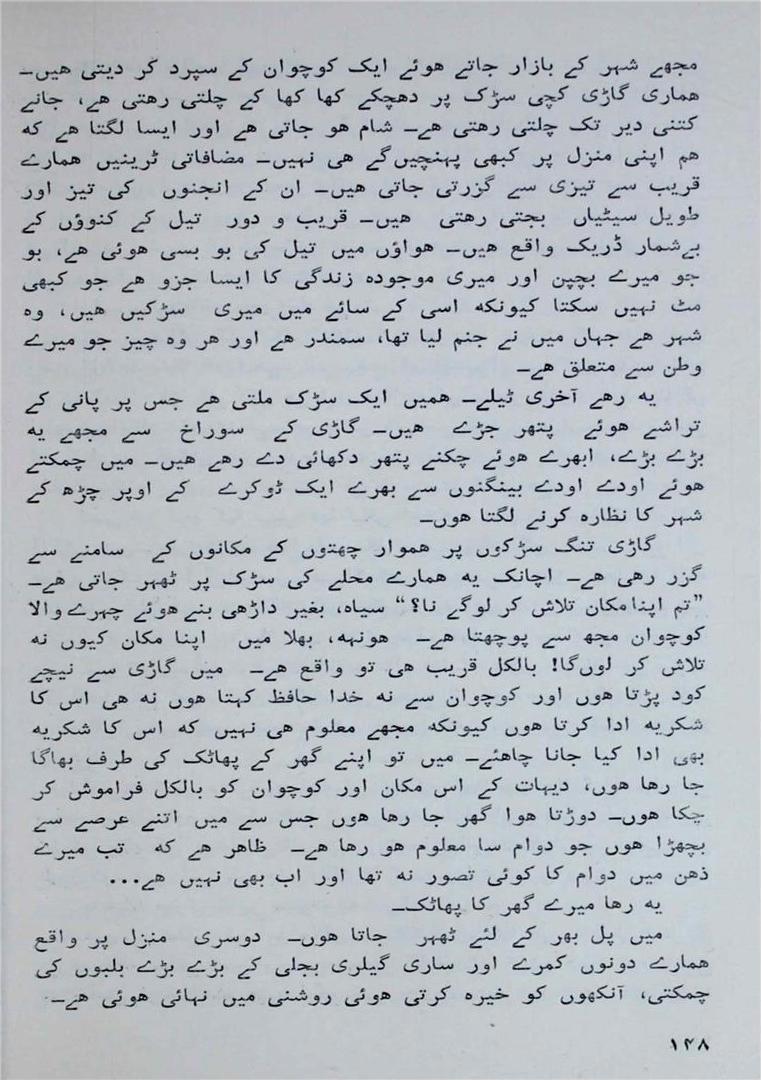 مجھے شہر کے بازار جاتے ھوئے ایک کوچوان کے سپرد کر دیتی ھیں۔
ھماری گاڑی کچی سڑک پر دھچکے کھا کھا کے چلتی رھتی ھے، جانے
کتنی دیر تک چلتی رھتی ھے۔ شام ھو جاتی ھے اور ایسا لگتا ھے که
ھم اپنی منزل پر کبھی پہنچیںگے ھی نہیں۔ مضافاتی ٹرینیں ھمارے
قریب سے تیزی سے گزرتی جاتی ھیں۔ ان کے انجنوں کی تیز اور
طویل سیٹیاں بجتی رھتی ھیں۔ قریب و دور تیل کے کنوؤں کے
بےشمار ڈریک واقع ھیں۔ ھواؤں میں تیل کی بو بسی ھوئی ھے، بو
جو میرے بچپن اور میری موجودہ زندگی کا ایسا جزو ھے جو کبھی
مٹ نہیں سکتا کیونکه اسی کے سائے میں میری سڑکیں ھیں، وہ
شہر ھے جہاں میں نے جنم لیا تھا، سمندر ھے اور ھر وہ چیز جو میرے
وطن سے متعلق ھے۔
یه رھے آخری ٹیلے۔ ھمیں ایک سڑک ملتی ھے جس پر پانی کے
تراشے ھوئے پتھر جڑے ھیں۔ گاڑی کے سوراخ سے مجھے یه
بڑے بڑے، ابھرے ھوئے چکنے پتھر دکھائی دے رھے ھیں۔ میں چمکتے
ھوئے اودے اودے بینگنوں سے بھرے ایک ٹوکرے کے اوپر چڑھ کے
شہر کا نظارہ کرنے لگتا ھوں۔
گاڑی تنگ سڑکوں پر ھموار چھتوں کے مکانوں کے سامنے سے
گزر رھی ھے۔ اچانک یه ھمارے محلے کی سڑک پر ٹھہر جاتی ھے۔
”تم اپنا مکان تلاش کر لوگے نا؟“ سیاہ، بغیر داڑھی بنے ھوئے چہرے والا
کوچوان مجھ سے پوچھتا ھے۔ ھونہه، بھلا میں اپنا مکان کیوں نه
تلاش کر لوںگا! بالکل قریب ھی تو واقع ھے۔ میں گاڑی سے نیچے
کود پڑتا ھوں اور کوچوان سے نه خدا حافظ کہتا ھوں نه ھی اس کا
شکریه ادا کرتا ھوں کیونکه مجھے معلوم ھی نہیں که اس کا شکریه
بھی ادا کیا جانا چاھئے۔ میں تو اپنے گھر کے پھاٹک کی طرف بھاگا
جا رھا ھوں، دیہات کے اس مکان اور کوچوان کو بالکل فراموش کر
چکا ھوں۔ دوڑتا ھوا گھر جا رھا ھوں جس سے میں اتنے عرصے سے
بچھڑا ھوں جو دوام سا معلوم ھو رھا ھے۔ ظاھر ھے که تب میرے
ذھن میں دوام کا کوئی تصور نه تھا اور اب بھی نہیں ھے...
یه رھا میرے گھر کا پھاٹک۔
میں پل بھر کے لئے ٹھہر جاتا ھوں۔ دوسری منزل پر واقع
ھمارے دونوں کمرے اور ساری گیلری بجلی کے بڑے بڑے بلبوں کی
چمکتی، آنکھوں کو خیرہ کرتی ھوئی روشنی میں نہائی ھوئی ھے۔
۱۴۸